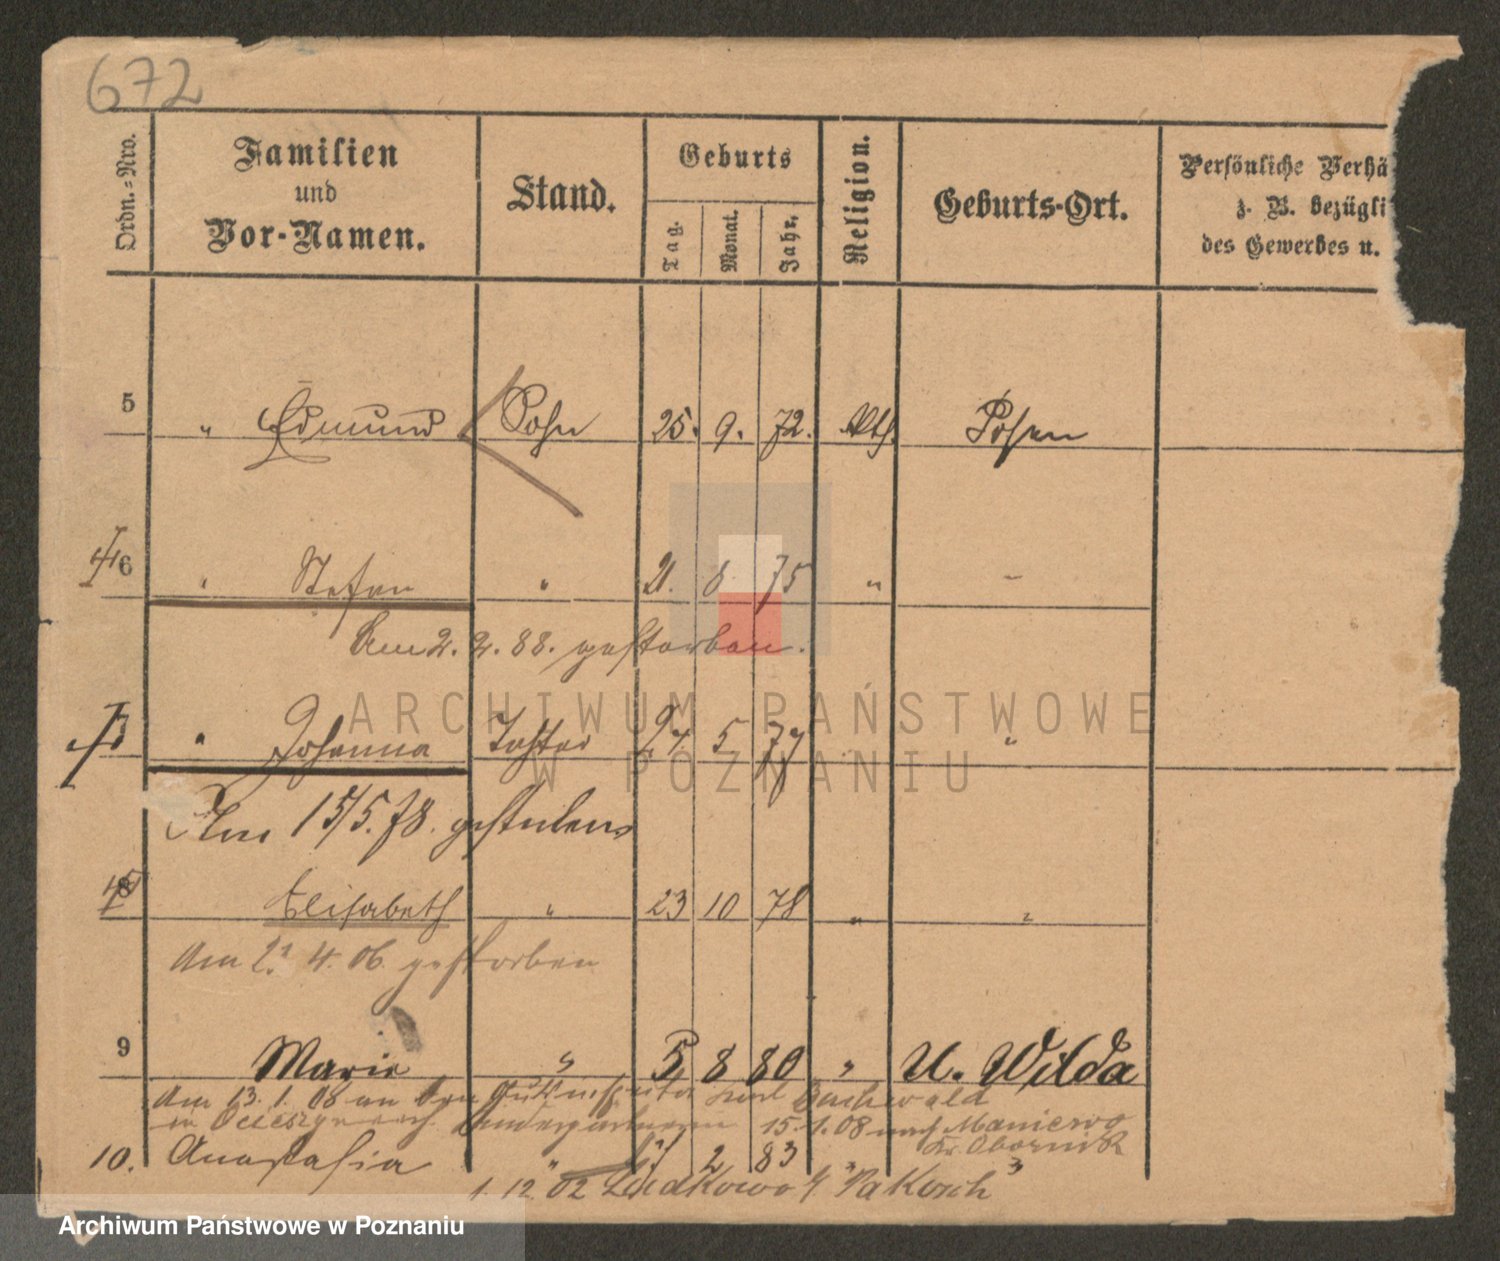 672
Ordn.=Nro.
Familien und Vor-Namen.
Stand.
Geburts
Tag.
Monat.
Jahr.
Religion.
Geburts-Ort.
Persönliche Verhä
z. B. bezügli
des Gewerbes u.
5 " Edmund Sohn 25. 9. 72. kth. Posen
6 " Stefan " 21. 8. 75 " "
Am 2. 2. 88. gestorben.
" Johanna Tochter 24. 5. 77 " "
Am 15/5.78. gestorben
8 Elisabeth " 23 10 78 " "
Am 21. 4. 06. gestorben
9 Marie " 5. 8 80 " U. Wilda
Am 13. 1. 08 an den Buchwald
in 15. 1. 08 nach Maniewo
Kr. Obornik
10. Anastasia " 2 83
1. 12 02 "Pakosch"
ARCHIWUM PAŃSTWOWE
W POZNANIU
Archiwum Państwowe w Poznaniu